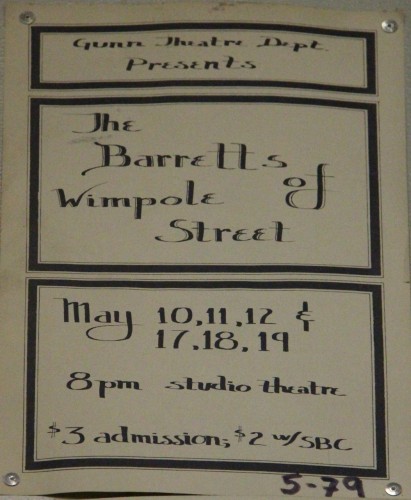 Gunn Theatre Dept.
Presents
The
Barretts
of
Wimpole
Street
May 10,11,12 &
17,18,19
8pm studio theatre
$3 admission; $2 w/SBC
5-79